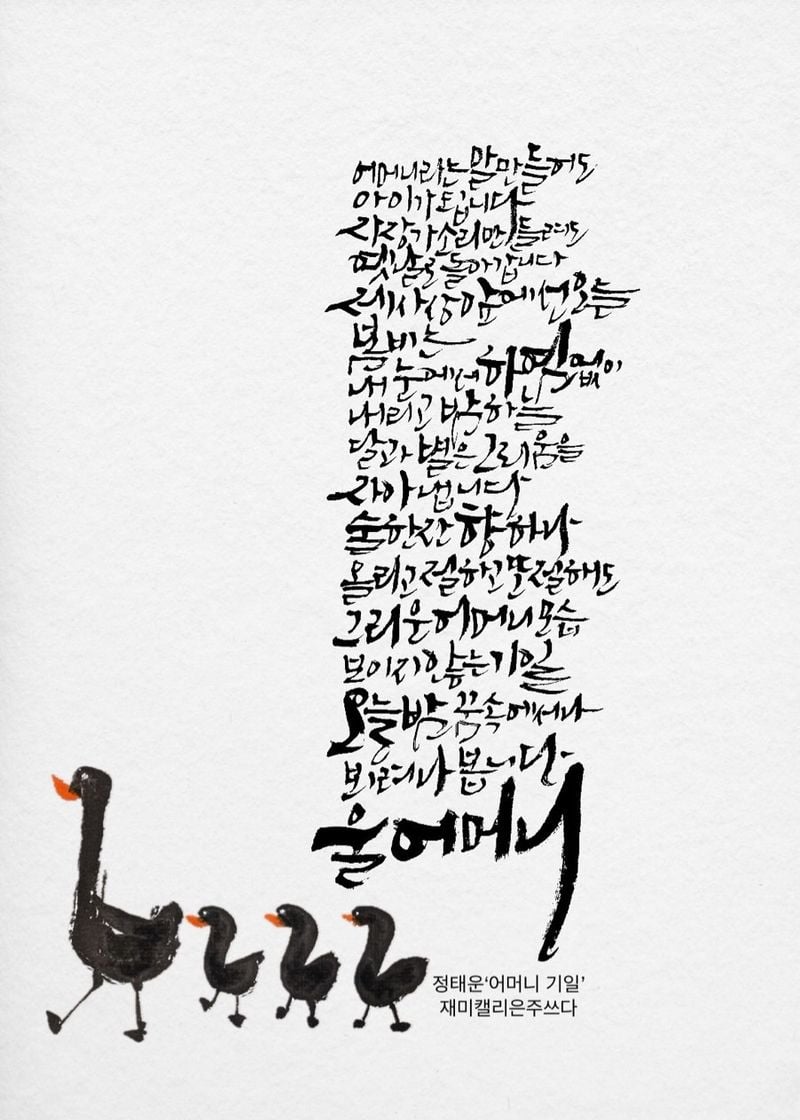 어머니라는 말만 들어도
아이가 됩니다
자장가 소리만 들려도
옛날로 돌아갑니다
제사상 앞에 선 오늘
봄비는
내 눈에서 하염없이
내리고 밤하늘
달과 별은 그리움을
자아냅니다
술 한잔 향 하나
올리고 절하고 또 절해도
그리운 어머니 모습
보이지 않는 기일
오늘밤 꿈속에서나
뵈려나 봅니다
울어머니
정태운‘어머니 기일’
재미캘리은주쓰다